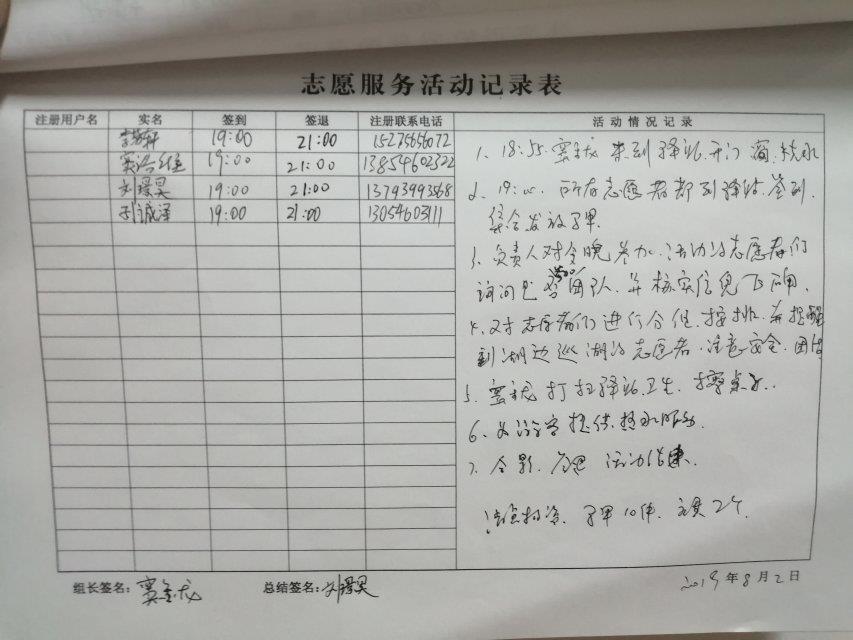 志愿服务活动记录表
注册用户名 实名 签到 签退 注册联系电话 活动情况记录
19:00 21:00 15275656072
19:00 21:00 13854602322
刘璟昊 19:00 21:00 13793993568
诚泽 19:00 21:00 13054603111
1、18:55. 窦金龙 来到驿站.开门
2、19:00. 所有志愿者都到驿站.签到.
集合发放马甲
3、负责人对今晚参加.活动的志愿者们
询问是 团队.并核实信息
4、对志愿者们进行分组.安排.并提醒
到湖边巡湖的志愿者.注意安全.团结
5、窦金龙打扫驿站卫生.擦桌子.
6、为游客提供.热水服务.
7、合影. 活动结束.
清点物资. 马甲10件. 2个.
组长签名：窦金龙 总结签名：刘璟昊 2019年8月2日